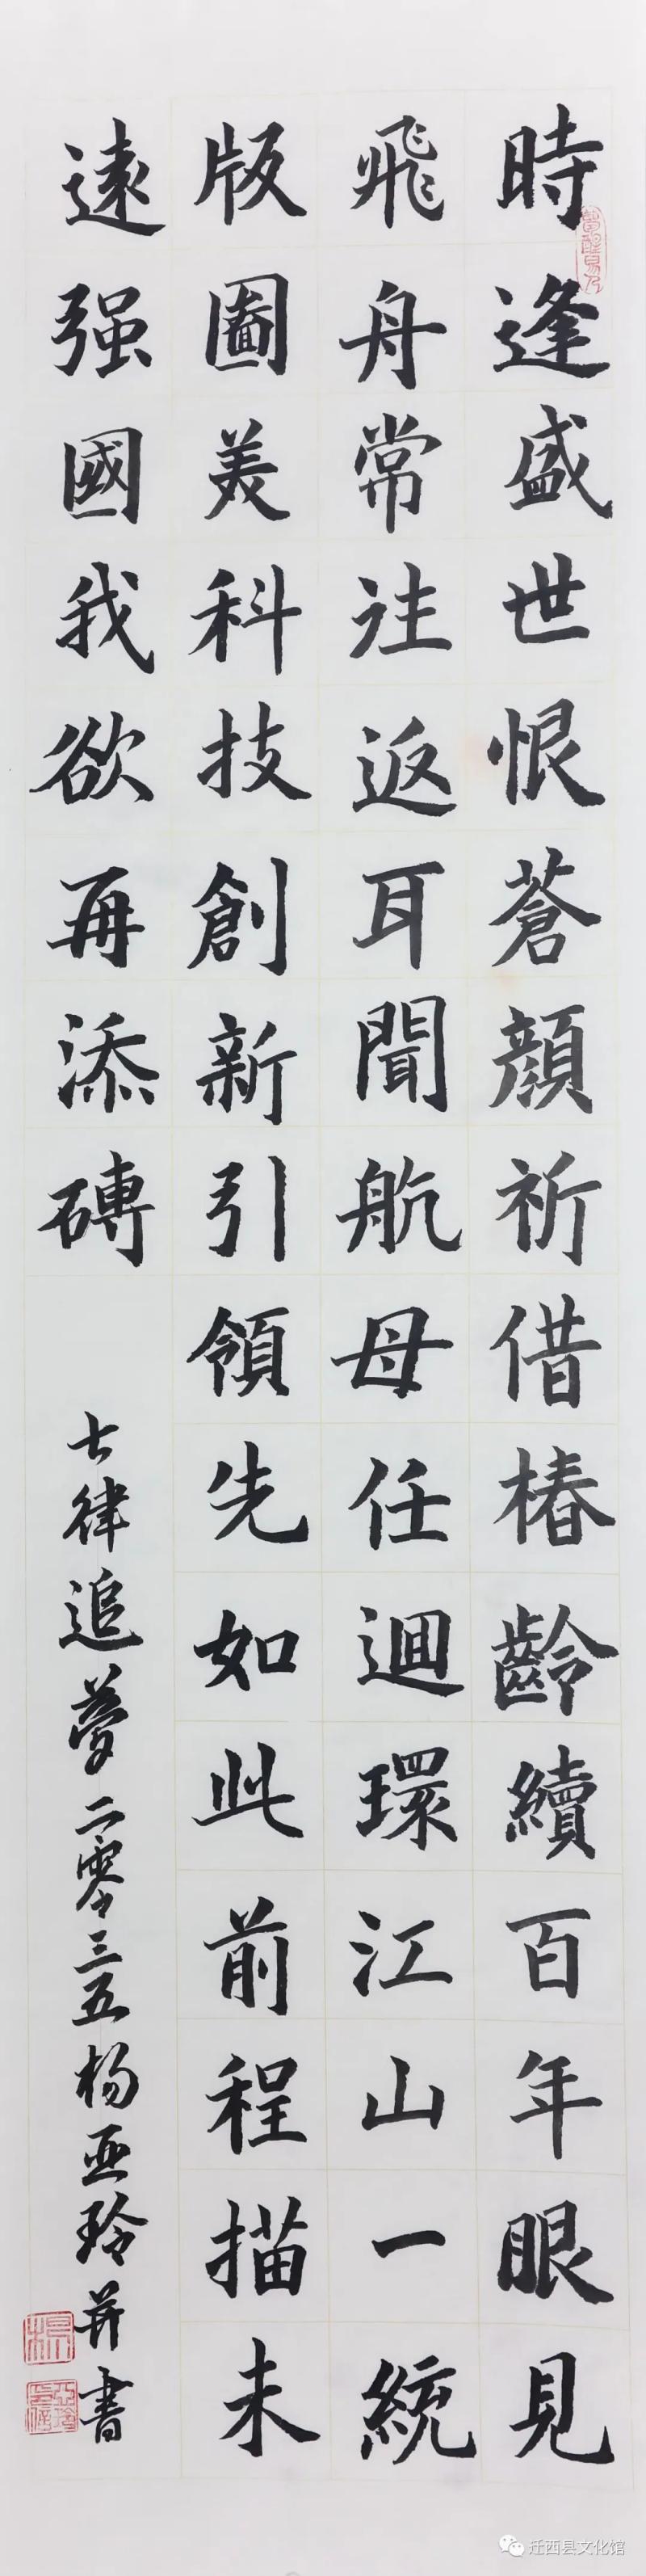 時逢盛世恨蒼顏祈借椿齡續百年眼見
飛舟常往返耳聞航母任迴環江山一統
版圖美科技創新引領先如此前程描未
遠强國我欲再添磚
七律追夢二零二三五杨亚玲并書
迁西县文化馆